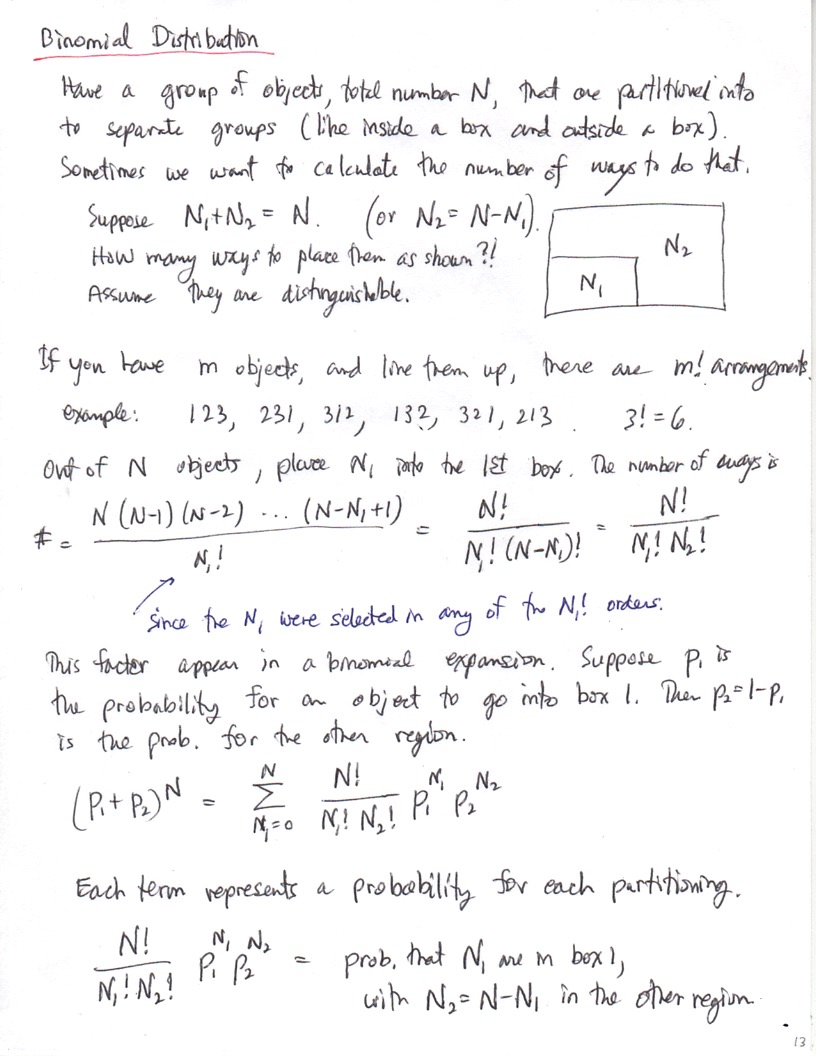 Binomial Distribution
Have a group of objects, total number N, that are partitioned into
to separate groups (like inside a box and outside a box).
Sometimes we want to calculate the number of ways to do that.
Suppose N₁+N₂ = N. (or N₂ = N-N₁).
How many ways to place them as shown?!
Assume they are distinguishable.
N₂
N₁
If you have m objects, and line them up, there are m! arrangements.
example: 123, 231, 312, 132, 321, 213. 3! = 6.
Out of N objects, place N₁ into the 1st box. The number of ways is
# = N(N-1)(N-2) ... (N-N₁+1) / N₁! = N! / N₁!(N-N₁)! = N! / N₁! N₂!
since the N₁ were selected in any of the N₁! orders.
This factor appear in a binomial expansion. Suppose p₁ is
the probability for an object to go into box 1. Then p₂=1-p₁
is the prob. for the other region.
(p₁+p₂)^N = Σ_{N₁=0}^{N} N! / N₁! N₂! p₁^N₁ p₂^N₂
Each term represents a probability for each partitioning.
N! / N₁! N₂! p₁^N₁ p₂^N₂ = prob. that N₁ are in box 1,
with N₂ = N-N₁ in the other region.
13